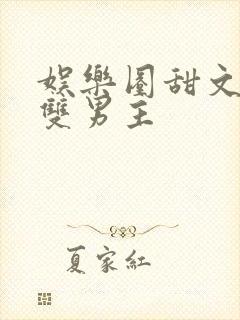 娛樂圈甜文
雙男主
夏家紅